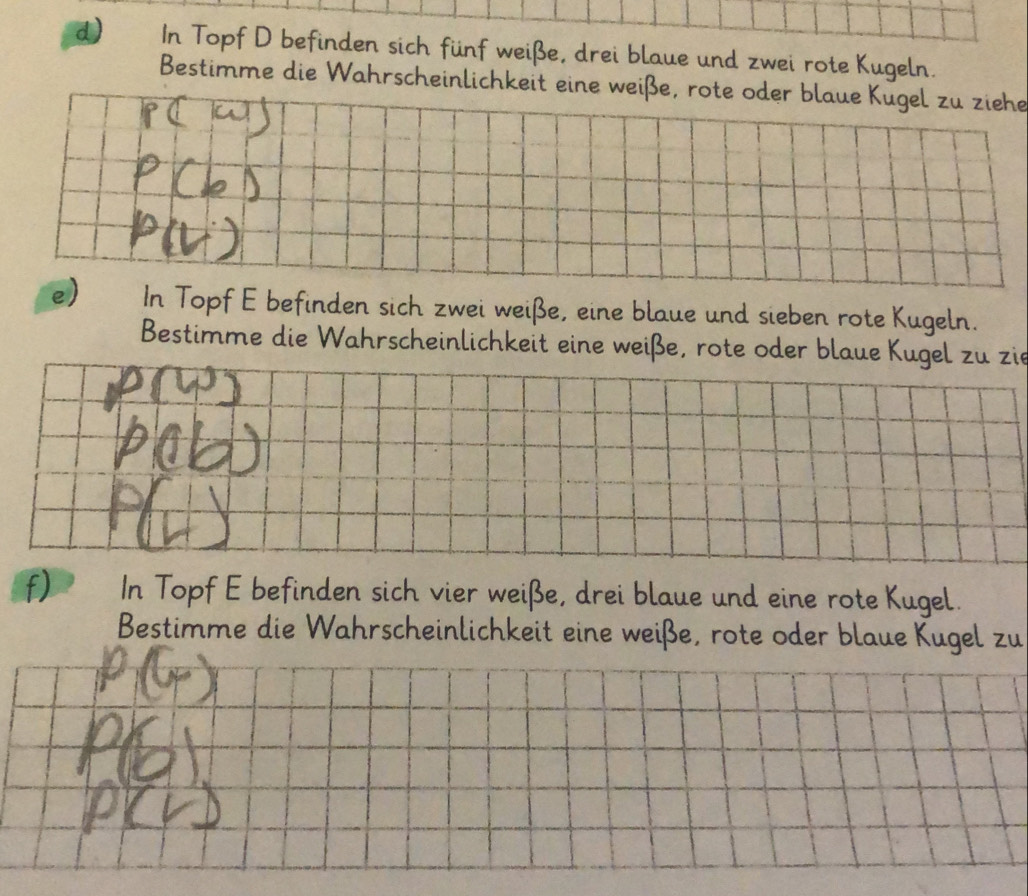 d) In Topf D befinden sich fünf weiße, drei blaue und zwei rote Kugeln.
Bestimme die Wahrscheinlichkeit eine weiße, rote oder blaue Kugel zu ziehe
P(w)
P(b)
P(r)
e) In Topf E befinden sich zwei weiße, eine blaue und sieben rote Kugeln.
Bestimme die Wahrscheinlichkeit eine weiße, rote oder blaue Kugel zu zie
P(w)
P(b)
P(r)
f) In Topf E befinden sich vier weiße, drei blaue und eine rote Kugel.
Bestimme die Wahrscheinlichkeit eine weiße, rote oder blaue Kugel zu
P(b)
P(r)